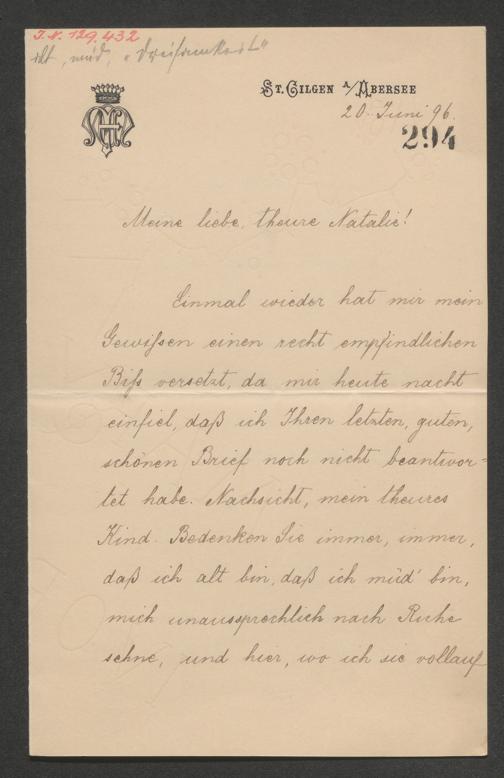 I.N. 129.432
alt, müd, "Dreifunkert"
St. Gilgen a/Abersee
20. Juni 96.
294
Meine liebe, theure Natalie!
Einmal wieder hat mir mein
Gewißen einen recht empfindlichen
Biß versetzt, da mir heute nacht
einfiel, daß ich Ihren letzten, guten,
schönen Brief noch nicht beantwor=
tet habe. Nachsicht, mein theures
Kind. Bedenken Sie immer, immer,
daß ich alt bin, daß ich müd' bin,
mich unaussprechlich nach Ruhe
sehne, und hier, wo ich sie vollauf